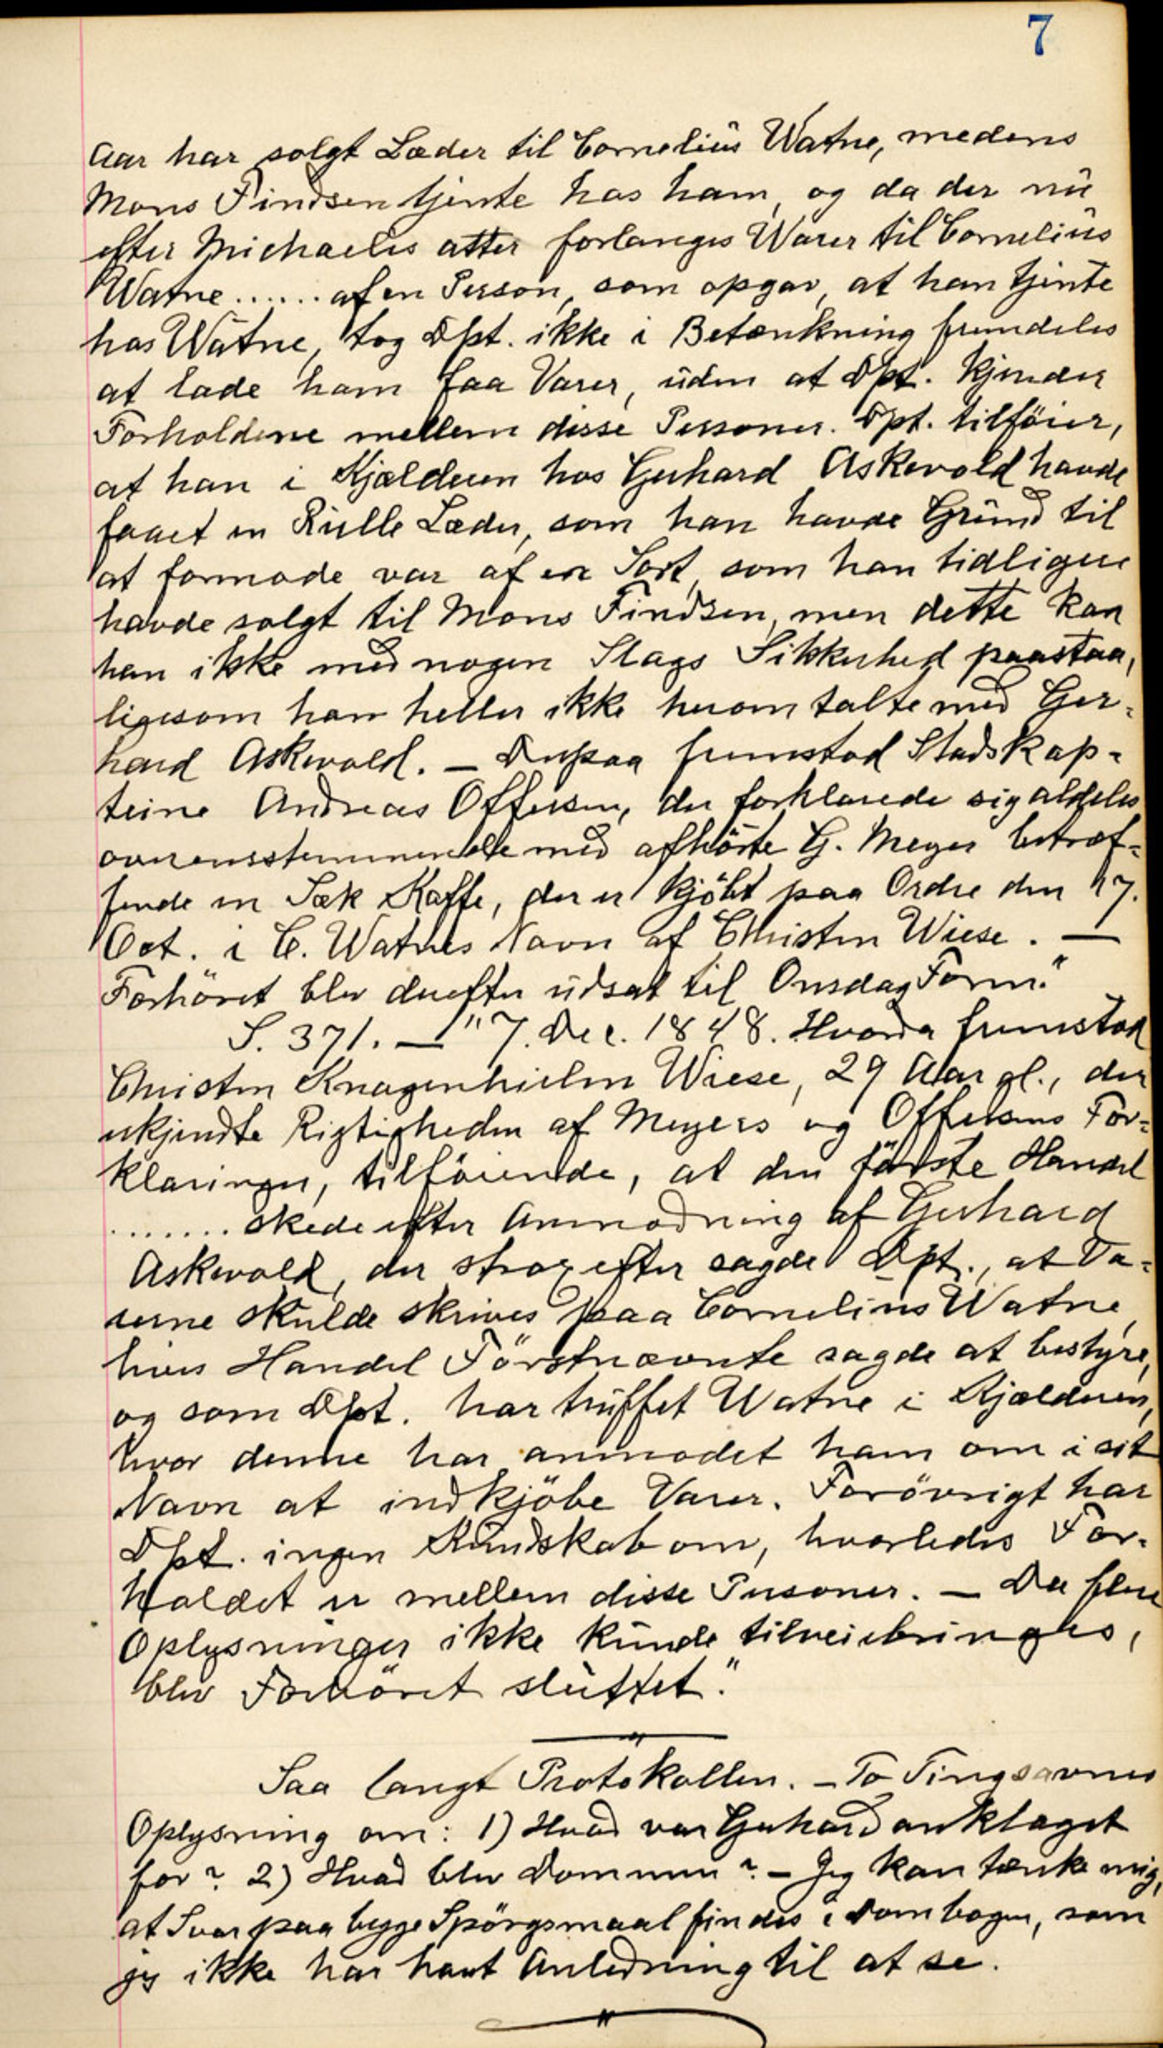 7
Aar har solgt Læder til Cornelius Watne, medens
Mons Findsen tjente hos ham, og da der nu
efter Michaelis atter forlanges Warer til Cornelius
Watne ...... af en Person, som opgav, at han tjente
hos Watne, tog Dpt. ikke i Betænkning fremdeles
at lade ham faa Varer, uden at Dpt. kjender
Forholdene mellem disse Personer. Dpt. tilföier,
at han i Kjælderen hos Gerhard Askevold havde
faaet en Rulle Læder, som han havde Grund til
at formode var af en Sort, som han tidligere
havde solgt til Mons Findsen, men dette kan
han ikke med nogen Slags Sikkerhed paastaa,
ligesom han heller ikke herom talte med Ger-
hard Askevold. — Derpaa fremstod Stadskap-
teine Andreas Offersen, der forklarede sig aldeles
overensstemmende med afhörte G. Meyer betræf-
fende en Sæk Kaffe, der er kjöbt paa Ordre den 27.
Oct. i C. Watnes Navn af Christen Wiese. —
Forhöret blev derefter udsat til Onsdag Form."
S. 371. — "7. Dec. 1848. Hvorda fremstod
Christen Knagenhielm Wiese, 29 Aar gl., der
erkjendte Rigtigheden af Meyers og Offersens For-
klaringer, tilföiende, at den förste Handel
........ skede efter Anmodning af Gerhard
Askevold, der strax efter sagde Dpt., at Va-
rerne skulde skrives paa Cornelius Watne,
hvis Handel Förstnævnte sagde at bestyre,
og som Dpt. har truffet Watne i Kjælderen,
hvor denne har anmodet ham om i sit
Navn at indkjöbe Varer. Forövrigt har
Dpt. ingen Kundskab om, hvorledes For-
holdet er mellem disse Personer. — Da flere
Oplysninger ikke kunde tilveiebringes,
blev Forhöret sluttet."
Saa langt Protokollen. — To Ting savnes
Oplysning om: 1) Hvad var Gerhard anklaget
for? 2) Hvad blev Dommen? — Jeg kan tænke mig,
at Svar paa begge Spörgsmaal findes i Dombogen, som
jeg ikke har havt Anledning til at se.